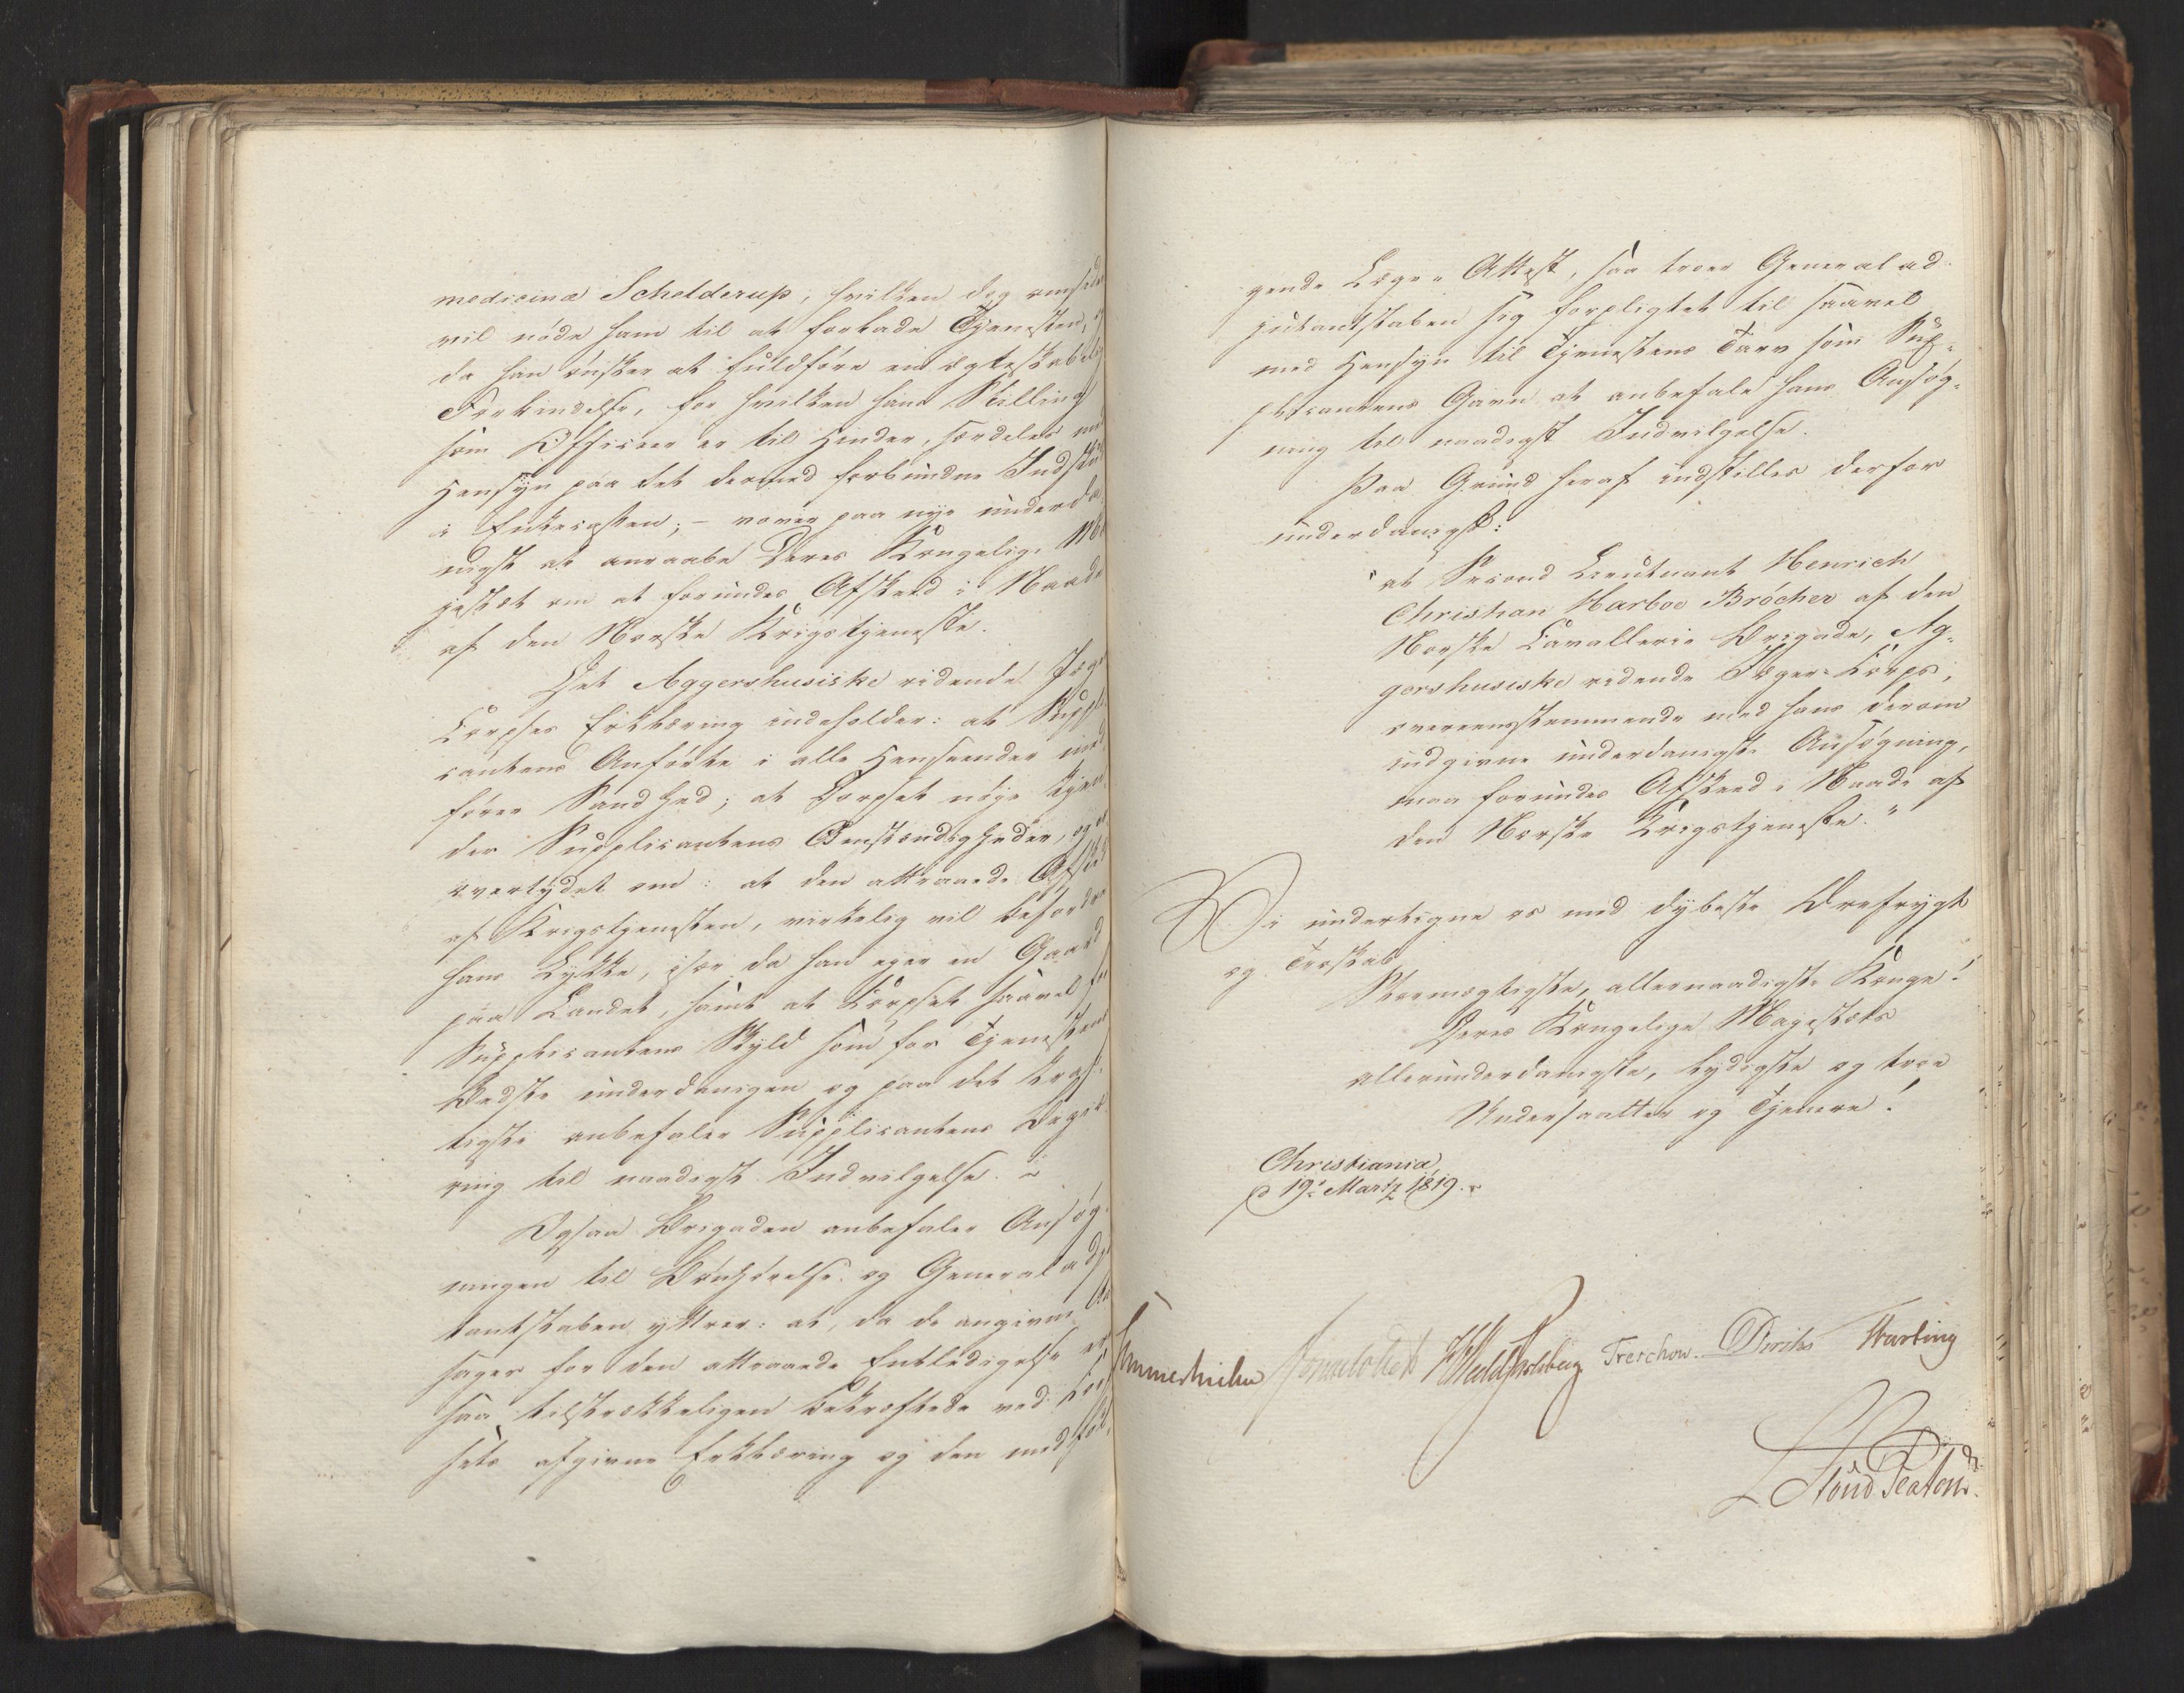 medicinæ Schelderup, hvilken dog omsider
vil nøde ham til at forlade Tjenesten,
da han ønsker at fuldføre en ægteskabelig
Forbindelse, for hvilken hans Stilling
som Officeer er til Hinder, særdeles med
Hensyn paa det dermed forbundne Indskud
i Enkecassen; – vover paa nye underda-
nigst at anraabe Deres Kongelige Ma-
jestæt om at forundes Afskeed i Naade
af den Norske Krigstjeneste.
Det Aggershusiske ridende Jæger
Corpses Erklæring indeholder: at Suppli-
cantens Anførte i alle Henseender med-
fører Sandhed; at Corpset nøje kjen-
der Supplicantens Omstændigheder, og er
overtydet om: at den attraaede Afskeed
af Krigstjenesten, virkelig vil befordre
hans Lykke, især da han eger en Gaard
paa Landet, samt at Corpset saavel for
Supplicantens Skyld som for Tjenestens
Bedste underdanigen og paa det kraf-
tigste anbefaler Supplicantens Begjæ-
ring til naadigst Indvilgelse. –
Ogsaa Brigaden anbefaler Ansøg-
ningen til Bønhørelse og Generaladju-
tantstaben yttrer: at, da de angivne Aar-
sager for den attraaede Entledigelse ere
saa tilstrækkeligen bekræftede ved Corp-
sets afgivne Erklæring og den medføl-
gende Læge-Attest, saa troer Generalad-
jutantstaben sig forpligtet til saavel
med Hensyn til Tjenestens Tarv som Sup-
plicantens Gavn at anbefale hans Ansøg-
ning til naadigst Indvilgelse.
Paa Grund heraf indstilles derfor
underdanigst:
"at Second Lieutnant Henrich
Christian Harboe Bröcher af den
Norske Cavallerie Brigade, Ag-
gershusiske ridende Jæger-Corps,
overeensstemmende med hans derom
indgivne underdanigste Ansøgning,
maa forundes Afskeed i Naade af
den Norske Krigstjeneste."
Vi undertegne os med dybeste Ærefrygt
og Troskab
Stormægtigste, allernaadigste Konge!
Deres Kongelige Majestæts
allerunderdanigste, lydigste og troe
Undersaatter og Tjenere!
Christiania,
d 19de Martz 1819.
Sommerhielm Treschow. Diriks Fasting